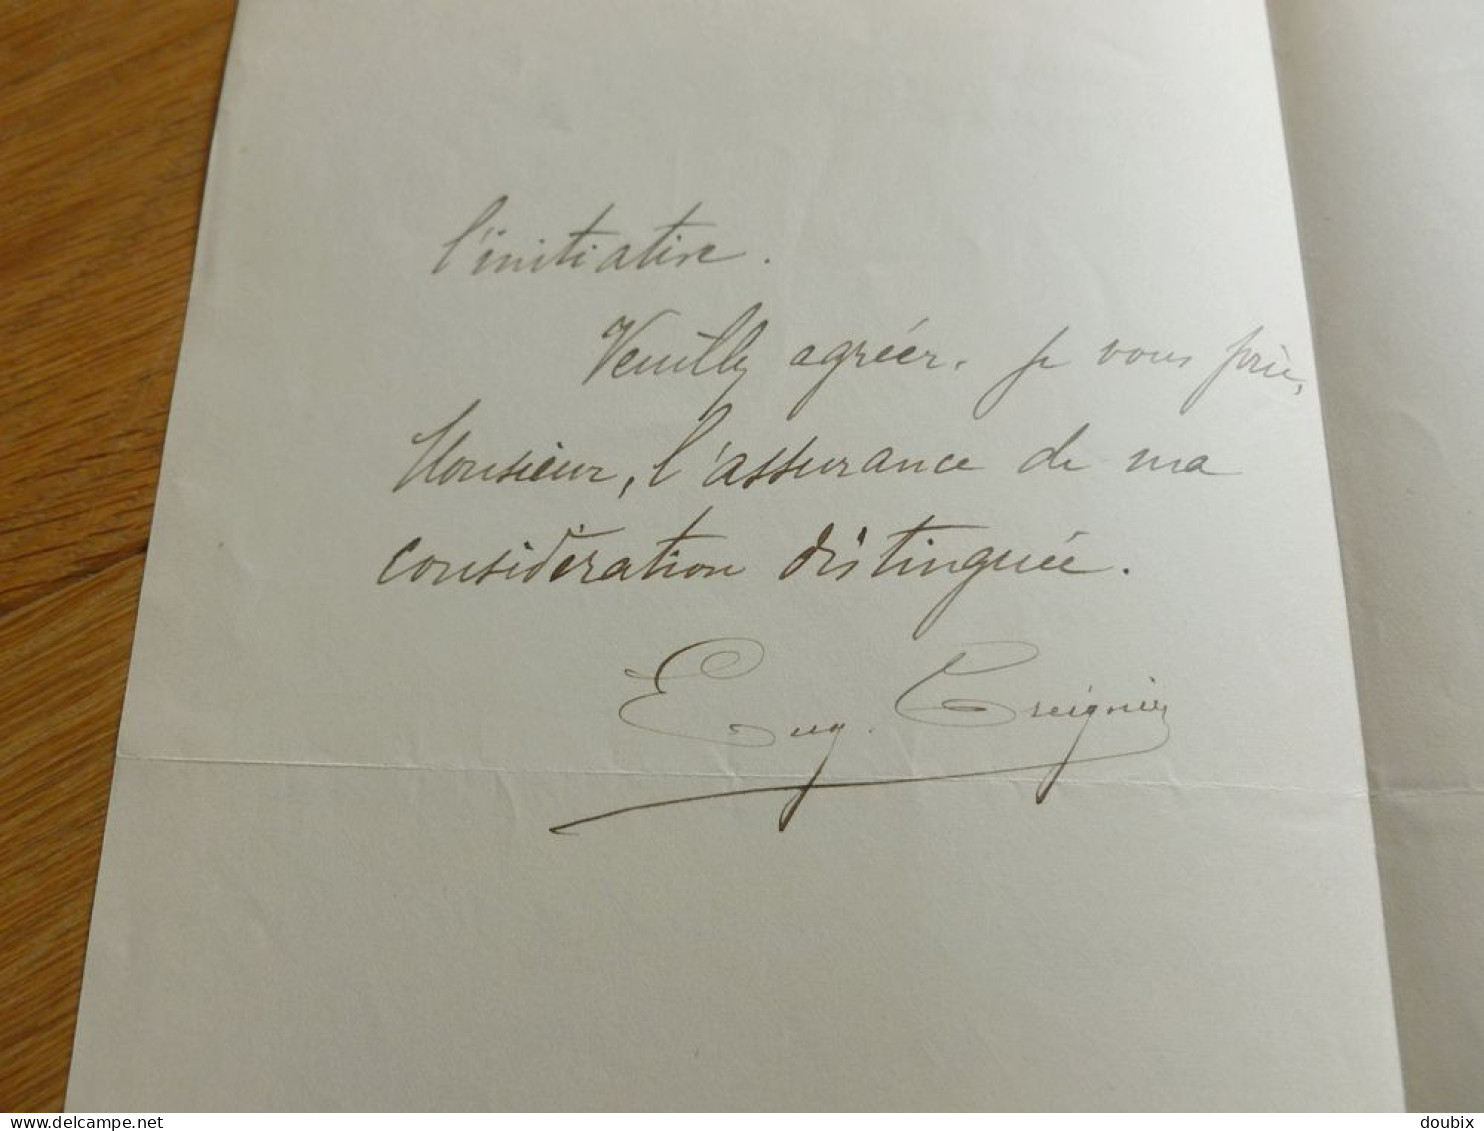 l'initiative.
Veuillez agréer, je vous prie,
Monsieur, l'assurance de ma
considération distinguée.
Eug. Creignier
delcampe.net
doubix